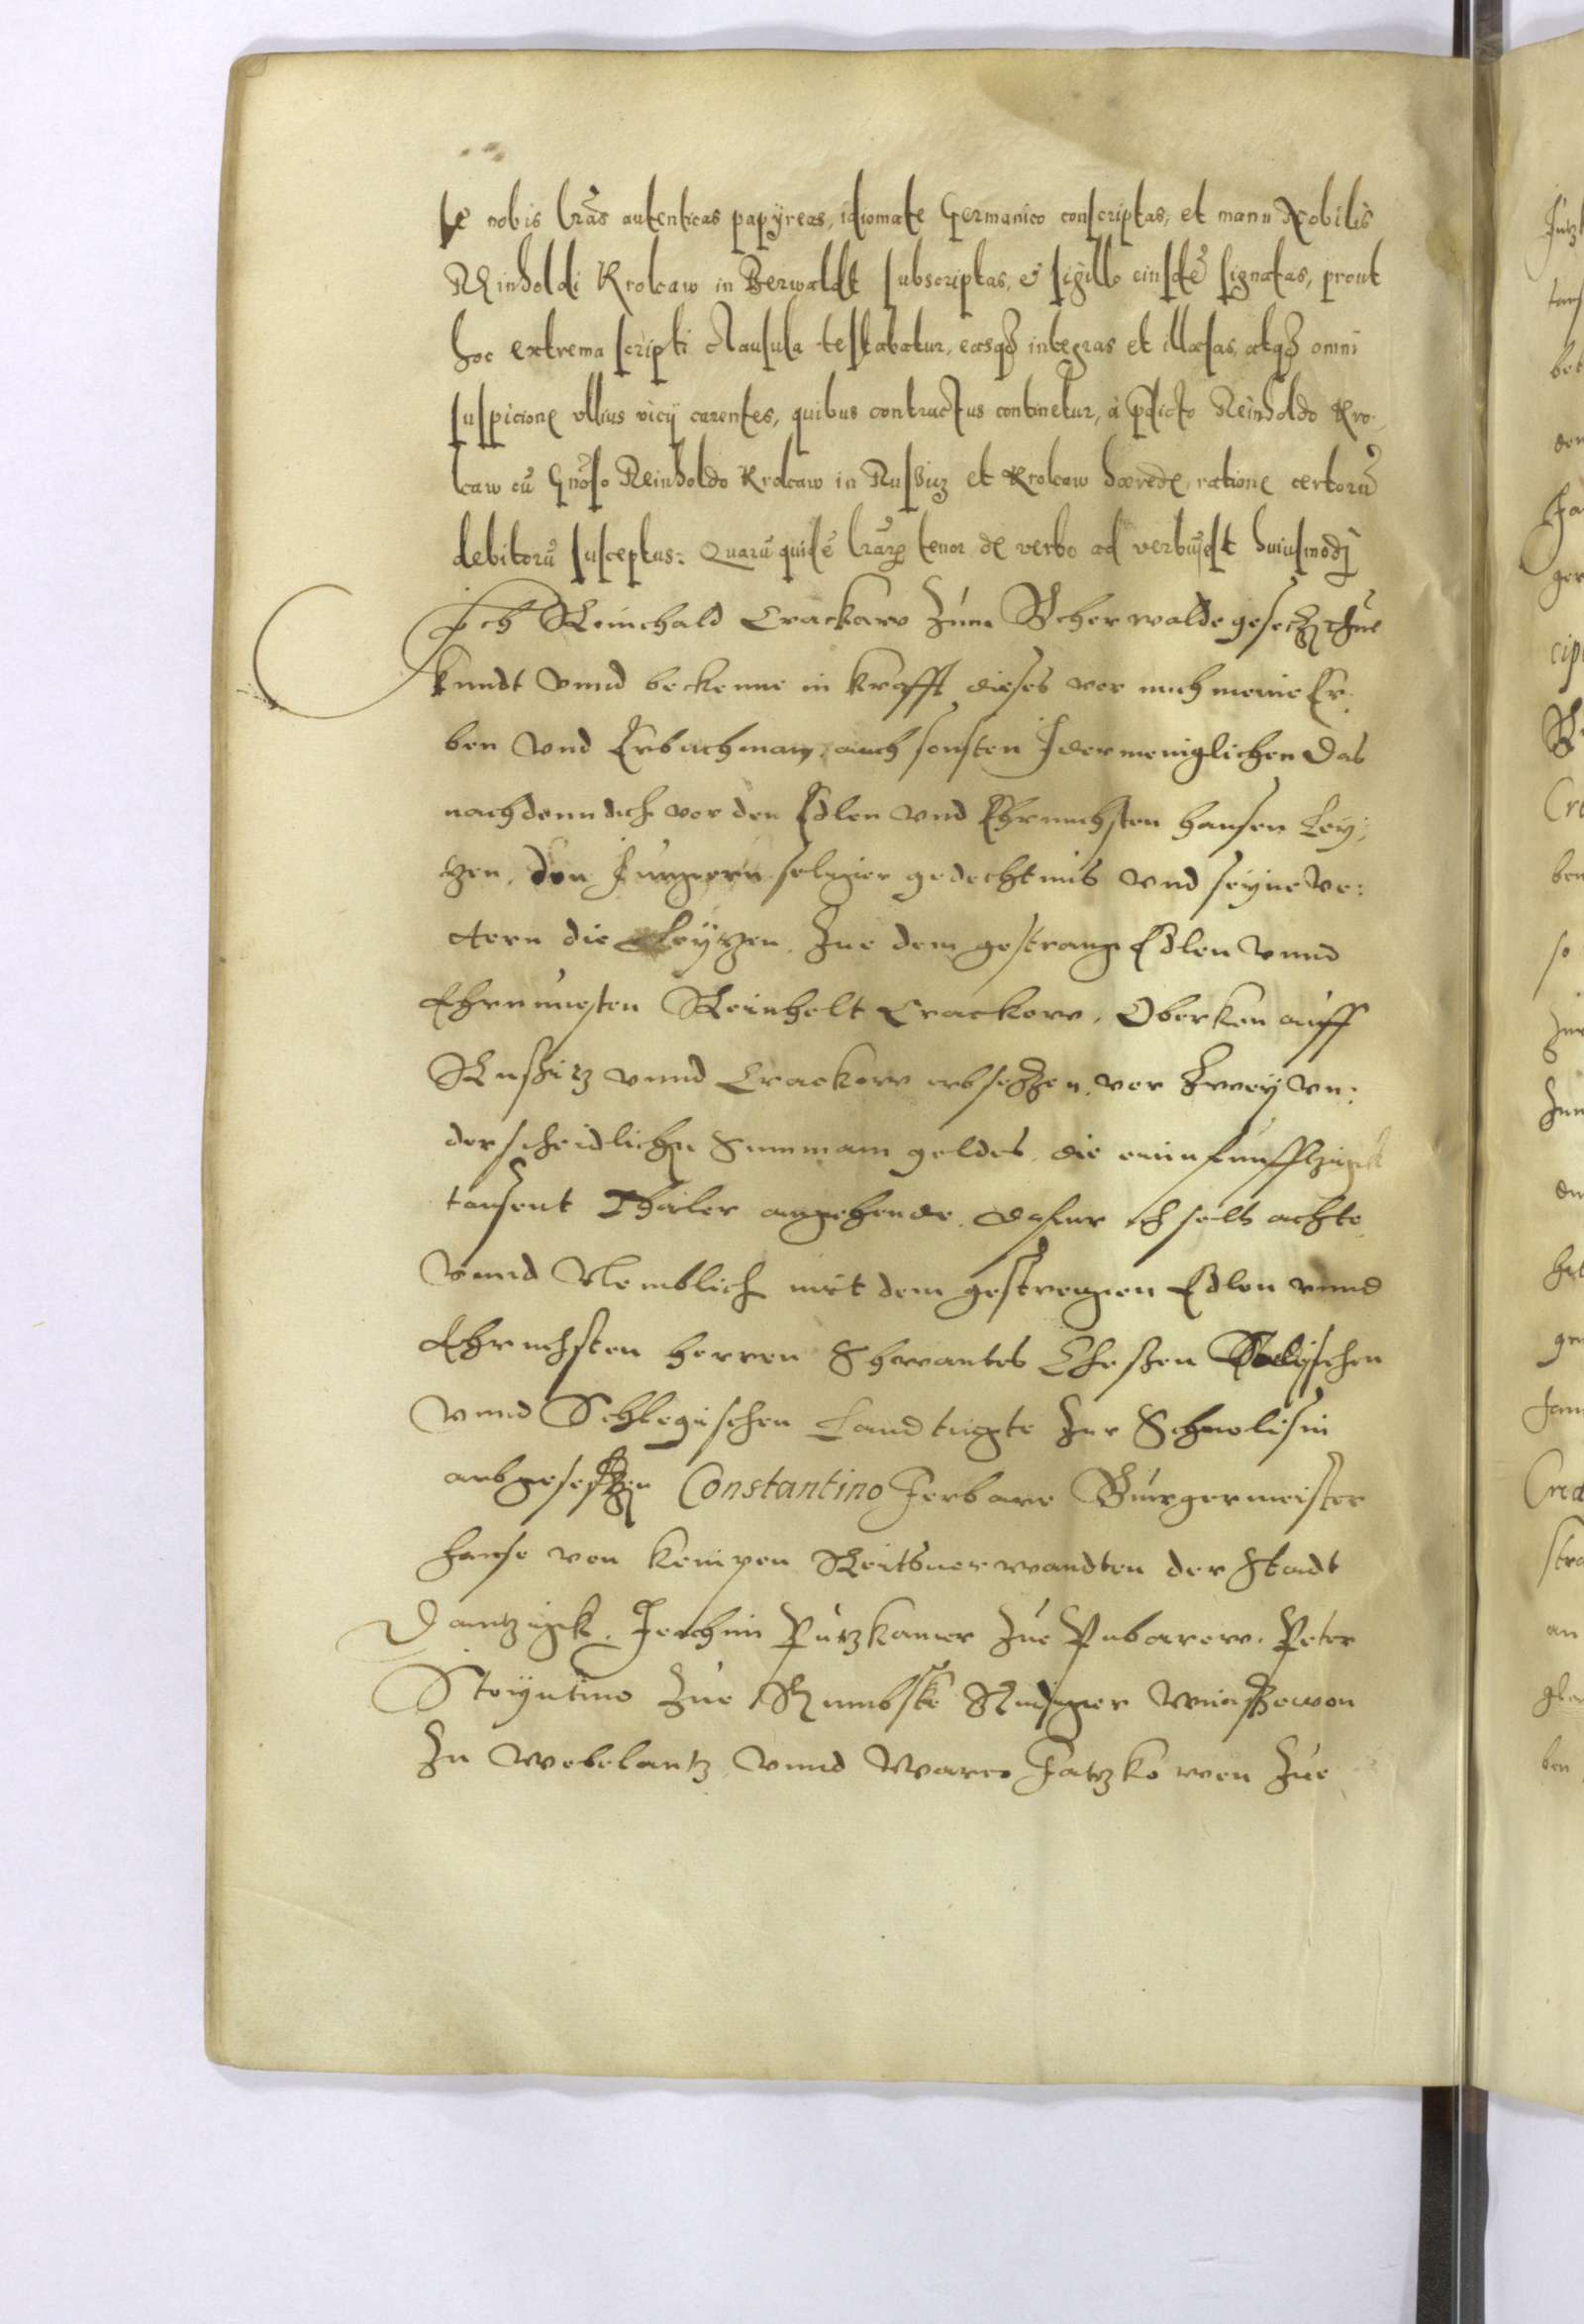 se nobis lr̃as autenticas papÿreas, idiomate Germanico conscriptas, et manu Nobilis
Reinholdi Krokaw in Berwaldt subscriptas, et sigillo eiusdẽ signatas, prout
hoc extrema scripti clausula testabatur, easq3 integras et illæsas, atq3 omni
suspicione vllius vicÿ carentes, quibus contractus continetur, à p̃dicto Reinholdo Kro-
kaw cũ Gnõso Reinholdo Krokaw in Ruschicz et Krokaw hærede, ratione certorũ
debitorũ susceptus: Quarũ quidẽ lr̃arũ tenor de verbo ad verbũ est huiusmodj
Ich Reinchald Crackaw zum Beherwalde gesetzen thue
kundt vnnd beckenne in krafft dieses vor mich meine Er-
ben vnd Erbnehman, auch sonsten Idermeniglichen das
nach denn dich vor den Edlen vnd Ehrnuhsten hansen Ley-
tzen, den Jungern seliger gedechtnis vnd seyne ve:
ttern die Leytzen. Zue dem gestrang Edlen vnnd
Ehrnuuesten Reinholt Crackow, Obersten auff
Rußitz vnnd Crackow erbseßen, vor zwey vn:
derscheidlichen Summam geldes, die einnfunfftzigk
tausent Thaler angehende, dafur ich selb achte
vnnd Nemblich mit dem gestrengen Edlen vnnd
Ehrnuhsten herren Schwantes Theßen
vnnd Schlegischen Landtuogte zur Schmolsin
erbgeseßen Constantino Ferbare Burgermeister
hanse von kempen Reitsuerwandten der Stadt
Dantzigk. Jochim Putzkamer zue Pubarow. Peter
Stoyntino zue Rumbske Rudiger
zu Wobelantz vnnd Marco Jatzkowen zue